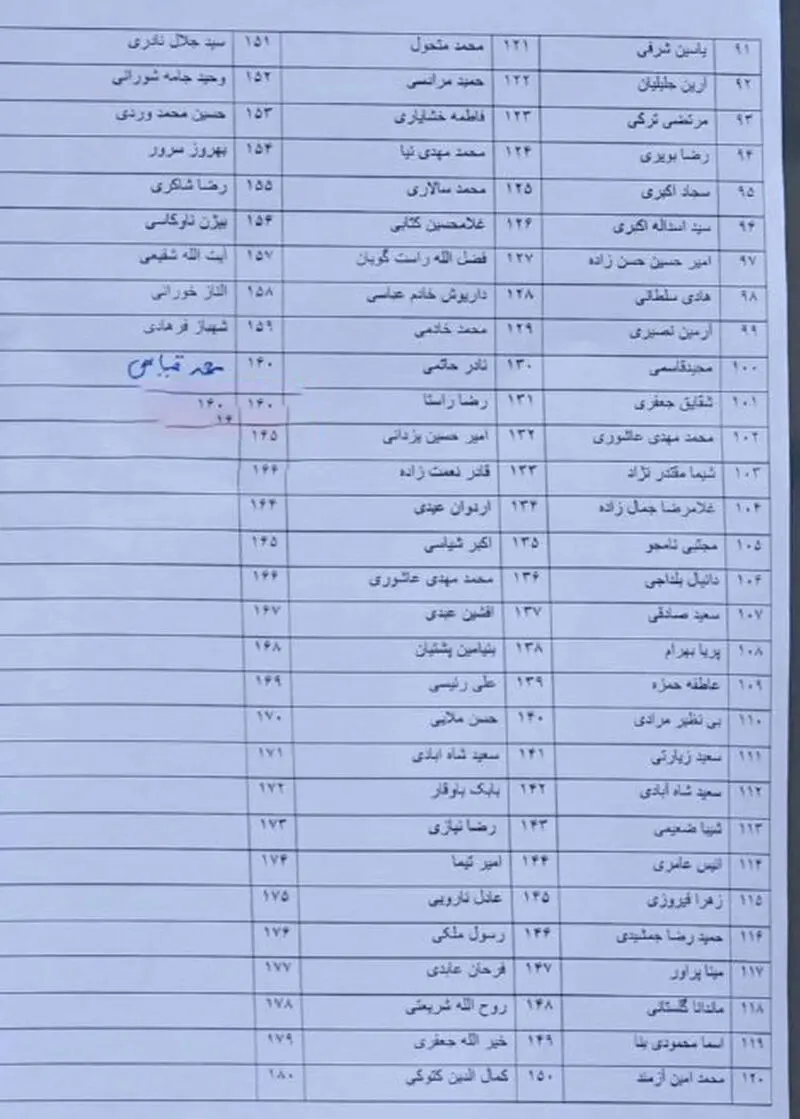 ۹۱ یاسین شرفی ۱۲۱ محمد متحول ۱۵۱ سید جلال نادری
۹۲ آرین جلیلیان ۱۲۲ حمید مرادسی ۱۵۲ وحید جامه شورانی
۹۳ مرتضی ترکی ۱۲۳ فاطمه خشایاری ۱۵۳ حسین محمد وردی
۹۴ رضا بویری ۱۲۴ محمد مهدی نیا ۱۵۴ بهروز سرور
۹۵ سجاد اکبری ۱۲۵ محمد سالاری ۱۵۵ رضا شاکری
۹۶ سید اسداله اکبری ۱۲۶ غلامحسین کتابی ۱۵۶ بیژن ناوکاسی
۹۷ امیر حسین حسن زاده ۱۲۷ فضل الله راست گویان ۱۵۷ آیت الله شفیعی
۹۸ هادی سلطانی ۱۲۸ داریوش خانم عباسی ۱۵۸ الناز خورانی
۹۹ آرمین نصیری ۱۲۹ محمد خادمی ۱۵۹ شهباز فرهادی
۱۰۰ مجیدقاسمی ۱۳۰ نادر حاتمی ۱۶۰
۱۰۱ شقایق جعفری ۱۳۱ رضا راستا ۱۶۰ ۱۶۰
۱۶
۱۰۲ محمد مهدی عاشوری ۱۳۲ امیر حسین یزدانی ۱۶۵
۱۰۳ شیما مقتدر نژاد ۱۳۳ قادر نعمت زاده ۱۶۶
۱۰۴ غلامرضا جمال زاده ۱۳۴ اردوان عبدی ۱۶۴
۱۰۵ مجتبی نامجو ۱۳۵ اکبر شیاسی ۱۶۵
۱۰۶ دانیال بلداجی ۱۳۶ محمد مهدی عاشوری ۱۶۶
۱۰۷ سعید صادقی ۱۳۷ افشین عبدی ۱۶۷
۱۰۸ پریا بهرام ۱۳۸ بنیامین پشتبان ۱۶۸
۱۰۹ عاطفه حمزه ۱۳۹ علی رئیسی ۱۶۹
۱۱۰ بی نظیر مرادی ۱۴۰ حسن ملایی ۱۷۰
۱۱۱ سعید زیارتی ۱۴۱ سعید شاه ابادی ۱۷۱
۱۱۲ سعید شاه آبادی ۱۴۲ بابک باوقار ۱۷۲
۱۱۳ شیبا ضعیمی ۱۴۳ رضا نیازی ۱۷۳
۱۱۴ انیس عامری ۱۴۴ امیر تیما ۱۷۴
۱۱۵ زهرا فیروزی ۱۴۵ عادل نارویی ۱۷۵
۱۱۶ حمید رضا جمشیدی ۱۴۶ رسول ملکی ۱۷۶
۱۱۷ مینا پراور ۱۴۷ فرحان عابدی ۱۷۷
۱۱۸ ماندانا گلستانی ۱۴۸ روح الله شریعتی ۱۷۸
۱۱۹ اسما محمودی بنا ۱۴۹ خیر الله جعفری ۱۷۹
۱۲۰ محمد امین آزمند ۱۵۰ کمال الدین کتوکی ۱۸۰